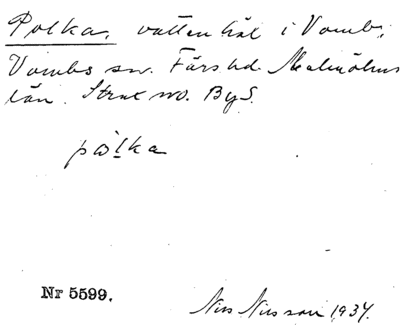 Polka, vattenhål i Vomb,
Vombs sn. Färs hd. Malmöhus
län. Strax no. By 5.
pòlka
Nr 5599.
Nils Nilsson 1934.